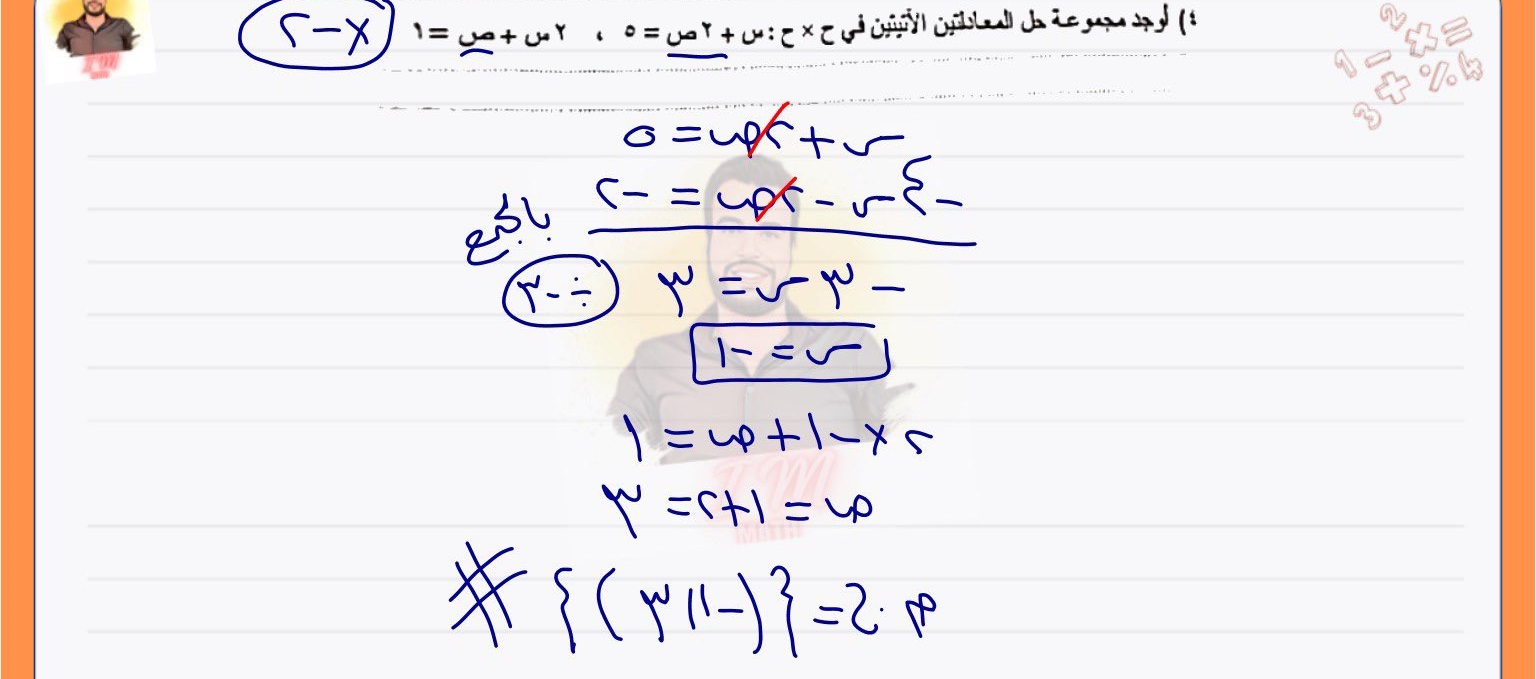 ٤) أوجد مجموعة حل المعادلتين الآتيتين في ح × ح : س + ٢ ص = ٥ ، ٢ س + ص = ١
× -٢
س + ٢ص = ٥
-٤س - ٢ص = -٢
بالجمع
-٣س = ٣
÷ -٣
س = -١
٢ × -١ + ص = ١
ص = ١ + ٢ = ٣
م . ح = {(-١ ، ٣)} #
TM
MATH